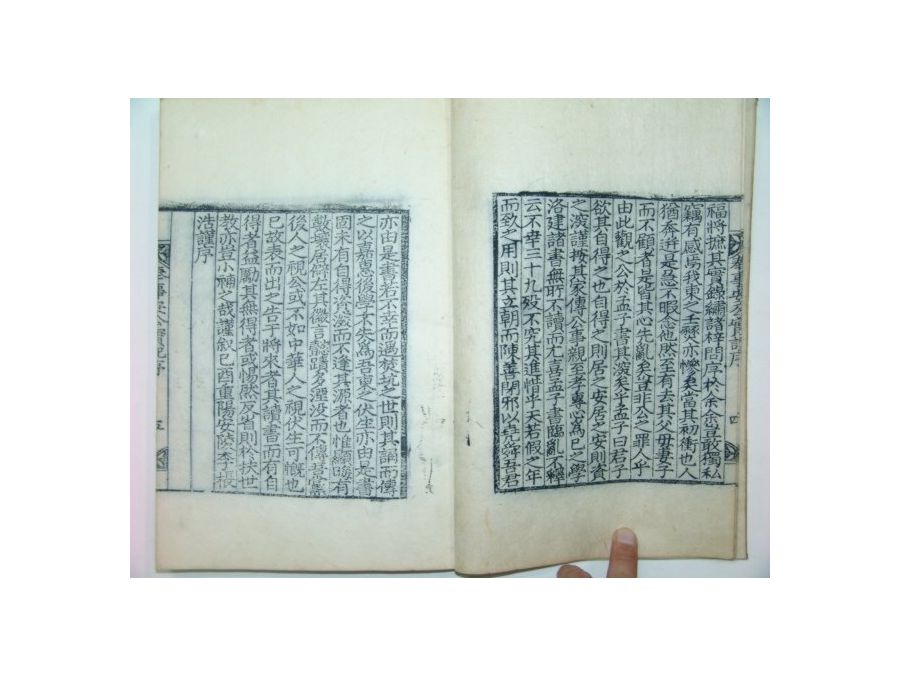 福將摭其實錄繡諸梓問序於余余豈敢獨私
竊有感焉我東之壬燹亦慘矣當其初衝也人
猶奔迸是急不暇念他然至有去其父母妻子
而不顧者是皆其心先亂矣豈非公之罪人乎
由此觀之公於孟子書其深矣乎孟子曰君子
欲其自得之也自得之則居之安居之安則資
之深謹按其家傳公事親至孝專心爲己之學
洛建諸書無所不讀而尤喜孟子書臨亂不釋
云不幸三十九歿不究其進惜乎天若假之年
而致之用則其立朝而陳善閉邪以堯舜吾君
亦由是書若不幸而遇焚坑之世則其誦而傳
之以嘉惠後學子不失爲吾東之伏生亦由是書
因末有自得資深而不逢其源者也惟顯晦有
數藥居僻左其微言懿蹟多湮沒而不傳
後人之視公或不如中華人之視伏生可慨也
已故表而出之告于將來者其讀書而有自
得者益勵其無得者或惕然反省則於扶世
教亦豈小補之哉謹敘己酉重陽安陵李根
浩謹序